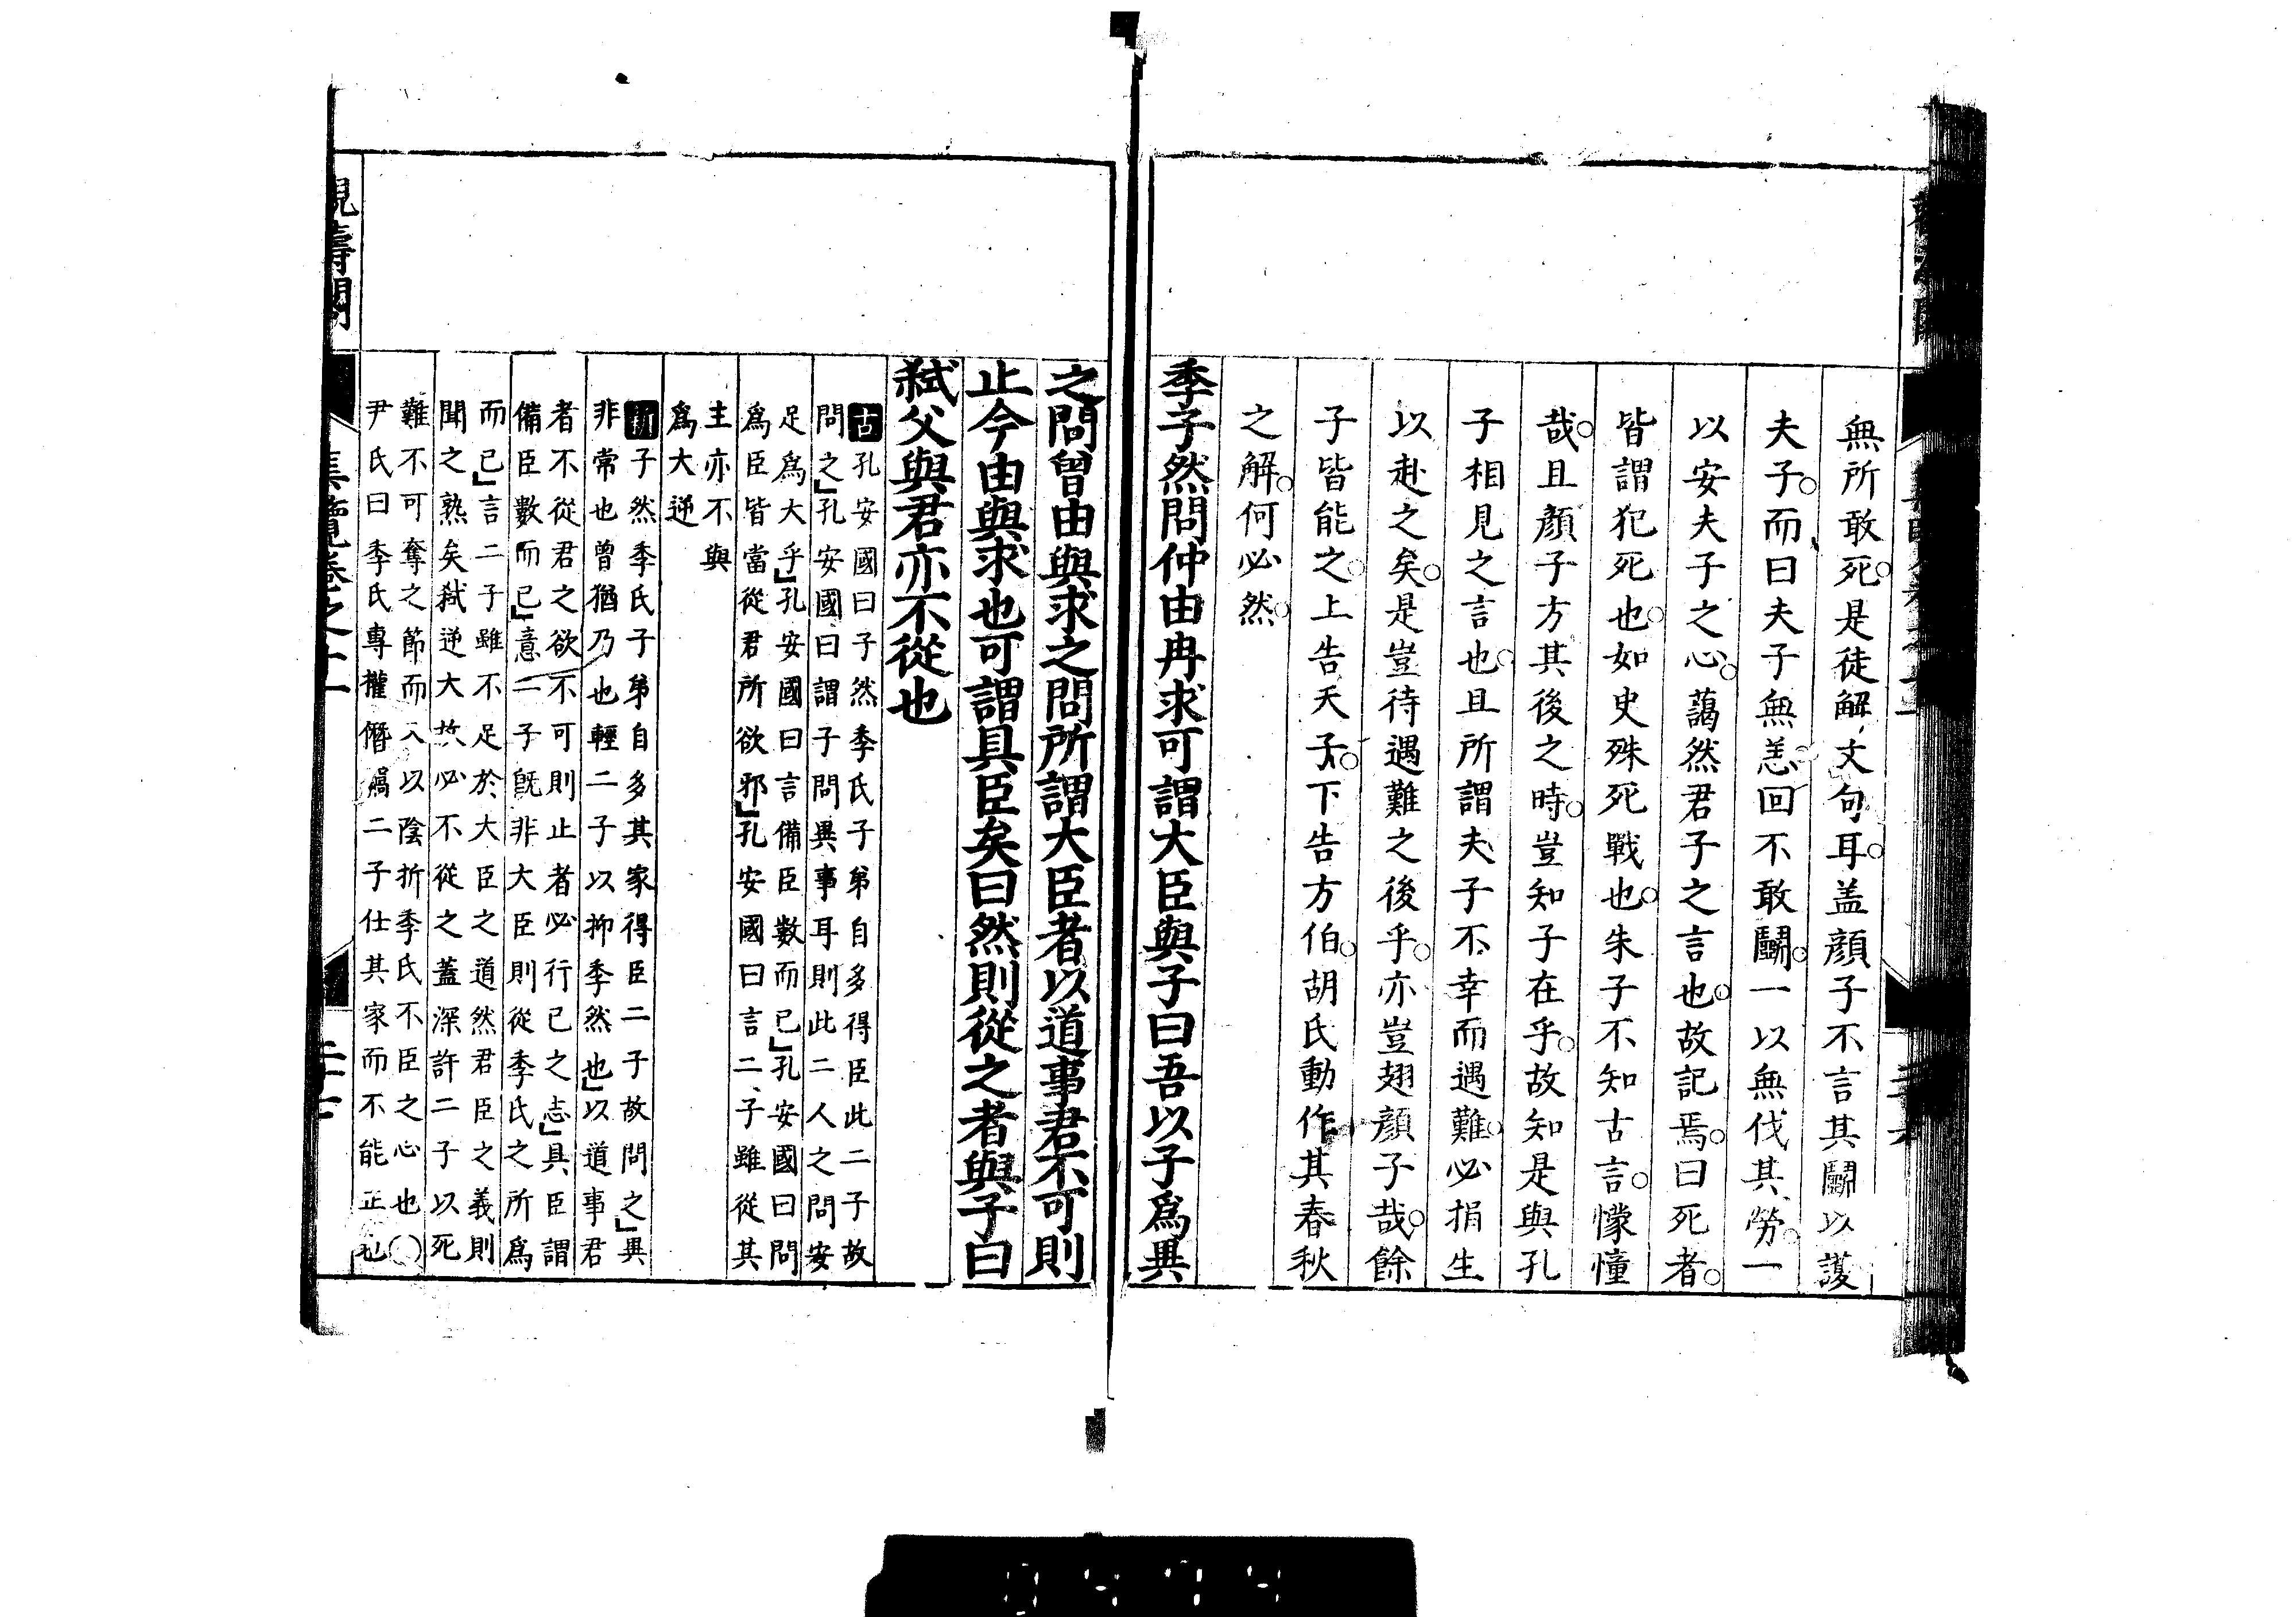 無所敢死○是徒解丈句耳○盖顏子不言其鬭以護
夫子○而曰夫子無恙回不敢鬭○一以無伐其勞○一
以安夫子之心○藹然君子之言也○故記焉○曰死者○
皆謂犯死也○如史殊死戰也○朱子不知古言○懞憧
哉○且顏子方其後之時○豈知子在乎○故知是與孔
子相見之言也○且所謂夫子不幸而遇難○必捐生
以赴之矣○是豈待遇難之後乎○亦豈翅顏子哉○餘
子皆能之○上告天子○下告方伯○胡氏動作其春秋
之解○何必然○
季子然問仲由冉求可謂大臣與子曰吾以子爲異
之問曾由與求之問所謂大臣者以道事君不可則
止今由與求也可謂具臣矣曰然則從之者與子曰
弑父與君亦不從也
古孔安國曰子然季氏子弟自多得臣此二子故
問之」孔安國曰謂子問異事耳則此二人之問安
足爲大乎」孔安國曰言備臣數而已」孔安國曰問
爲臣皆當從君所欲邪」孔安國曰言二子雖從其
主亦不與
爲大逆
新子然季氏子弟自多其家得臣二子故問之」異
非常也曾猶乃也輕二子以抑季然也」以道事君
者不從君之欲不可則止者必行己之志」具臣謂
備臣數而已」意二子既非大臣則從季氏之所爲
而已」言二子雖不足於大臣之道然君臣之義則
聞之熟矣弑逆大故必不從之蓋深許二子以死
難不可奪之節而又以陰折季氏不臣之心也○
尹氏曰季氏專權僭竊二子仕其家而不能正也
集覽卷之十一
二十七